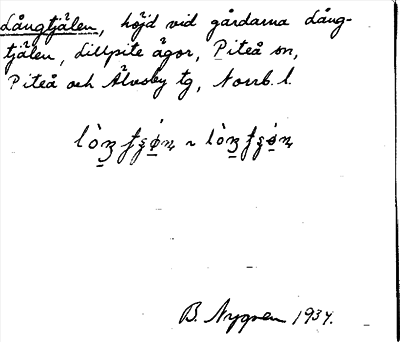 Långtjälen, höjd vid gårdarna Lång-
tjälen, Lillpite ägor, Piteå sn,
Piteå och Älvsby tg, Norrb. l.
B. Nygren 1934.